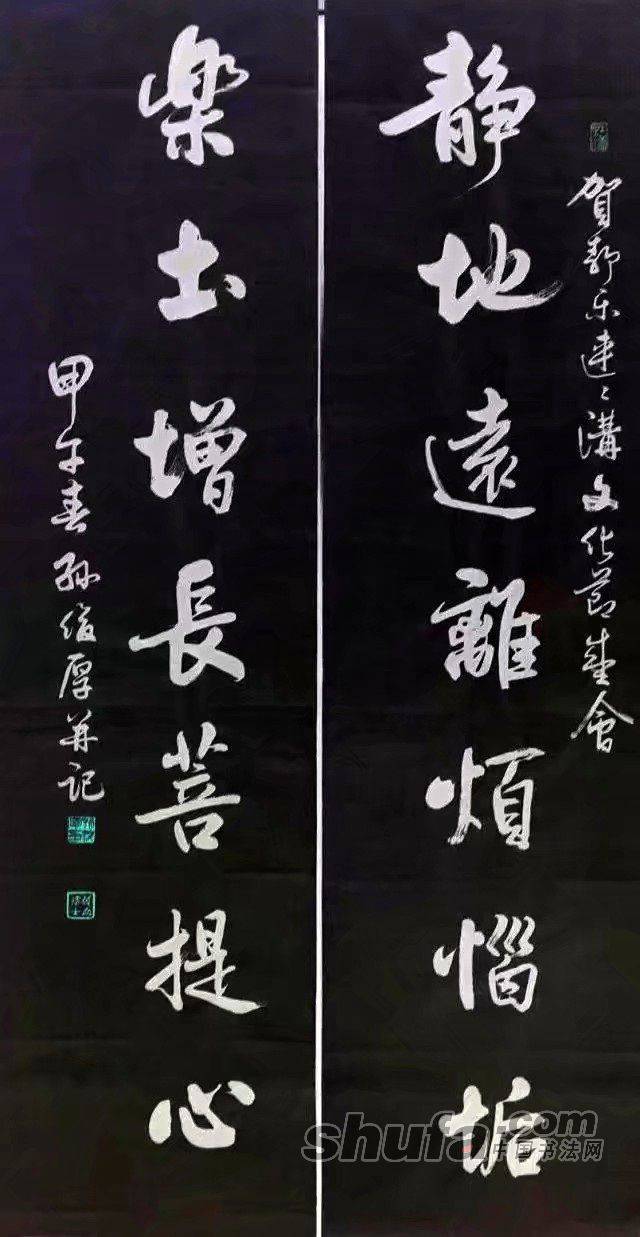 賀静乐连〻溝文化節盛會
静地遠離煩惱垢
樂土增長菩提心
甲午春孫俊厚并記
shufa.com
中国书法网